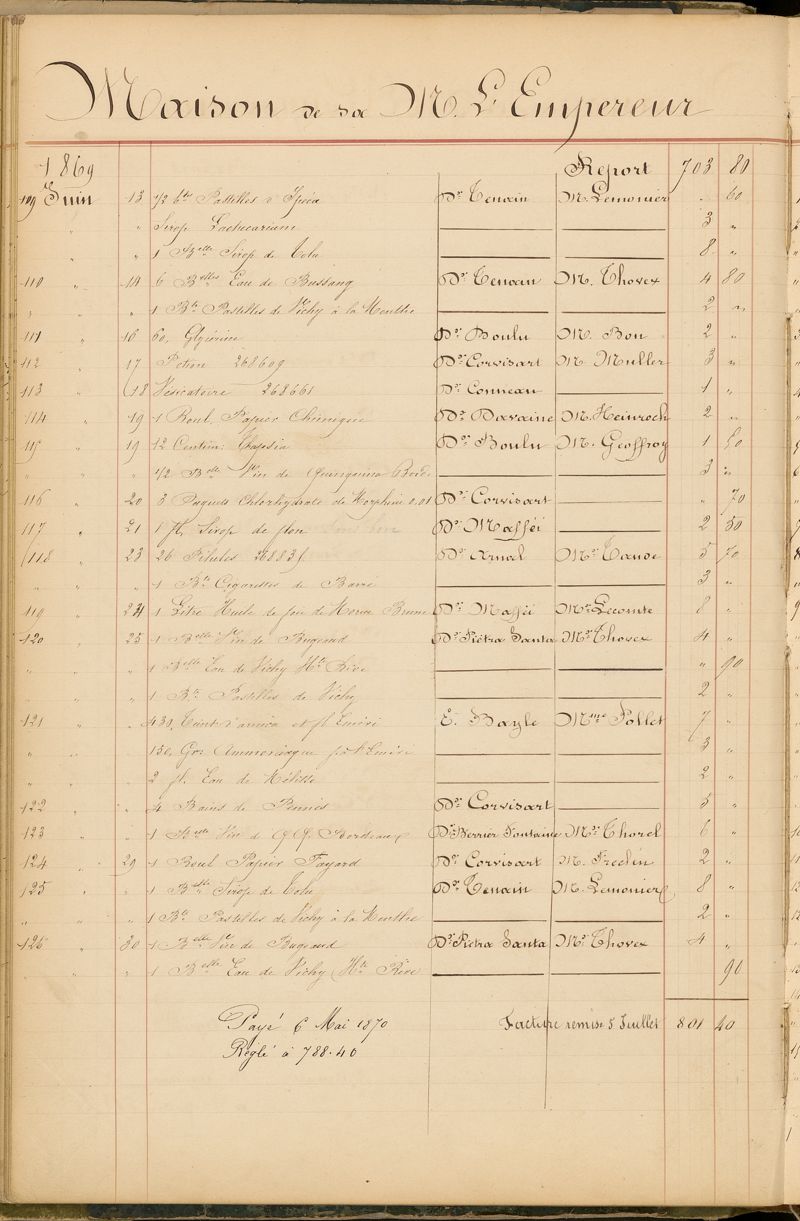 Maison de sa M. L'Empereur
1869 Report 703 80
109 Juin 13 1/2 bte Pastilles d'Ipéca Dr Tenain M. Lemonier . 60
" " Sirop Lactucarium 3 "
" " 1 Blle Sirop de Tolu 8 "
110 " 14 6 Blles Eau de Bussang Dr Tenain M. Thovex 4 80
" " " 1 Bte Pastilles de Vichy à la Menthe 2 "
111 " 16 60, Glycérine Dr Boulu M. Bon 2 "
112 " 17 Potion 268609 Dr Corvisart M. Muller 3 "
113 " 18 Vésicatoire 268661 Dr Conneau 1 "
114 " 19 1 Roul. Papier Chimique Dr Davaine M. Heinroch 2 "
115 " 19 12 Centim: Thapsia Dr Boulu M. Geoffroy 1 50
" " " 1/2 Blle Vin de Quinquina Bord. 3 "
116 " 20 3 Paquets Chlorhydrate de Morphine 0.01 Dr Corvisart " 70
117 " 21 1 fl. Sirop de flon Dr Mafféi 2 50
118 " 23 26 Pilules 26883 Dr Arnal Mr 5 70
" " " 1 Bte Cigarettes de Barré 3 "
119 " 24 1 Litre Huile de foie de Morue Brune Dr Mafféi Mr Lecomte 8 "
120 " 25 1 Blle Vin de Bugeaud Dr Piétra Santa Mr Thovex 4 "
" " " 1 Blle Eau de Vichy Hte Rive " 90
" " " 1 Bte Pastilles de Vichy 2 "
121 " " 430, Teint. d'arnica et fl Eméri E. Bayle Mme Pollet 7 "
" " 150, Gr. Ammoniaque Eméri 3 "
" " 2 fl. Eau de Mélisse 2 "
122 " 4 Bains de Pennès Dr Corvisart 5 "
123 " " 1 Blle Vin de QQ. Bordeaux Dr Berrier Fontaine Mr Thorel 6 "
124 " 29 1 Roul Papier Fayard Dr Corvisart M. Fredin 2 "
125 " " 1 Blle Sirop de Tolu Dr Tenain M. Lemonier 8 "
" " " 1 Bte Pastilles de Vichy à la Menthe 2 "
126 " 30 1 Blle Vin de Bugeaud Dr Piétra Santa Mr Thovex 4 "
" " 1 Blle Eau de Vichy (Hte Rive 90
Payé 6 Mai 1870 Facture remise 5 Juillet 801 40
Réglé à 788.40